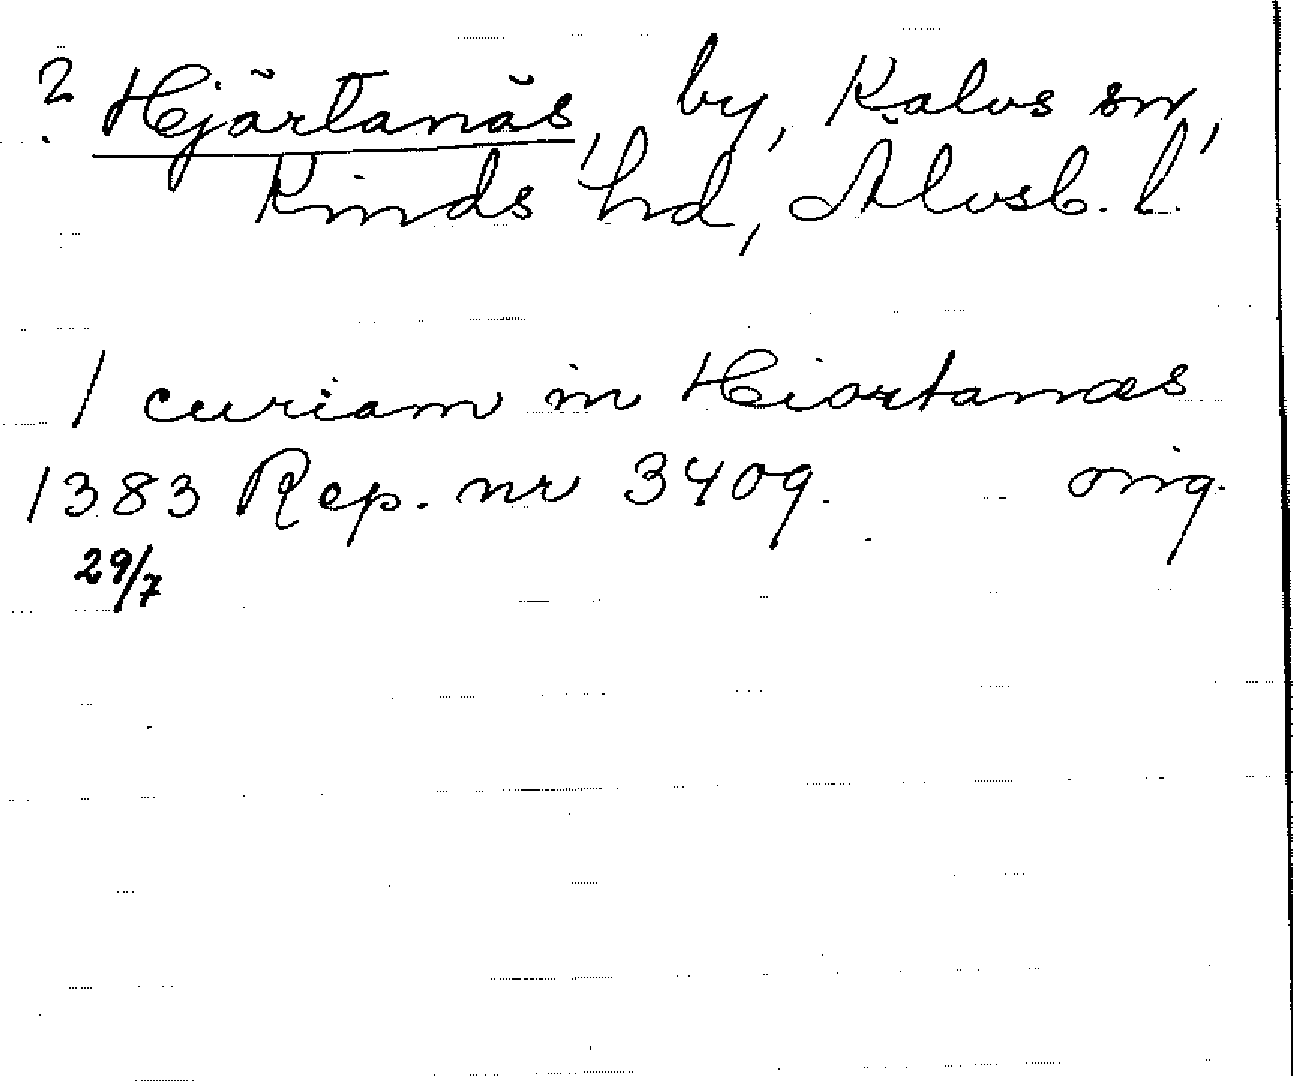 ? Hjärtanäs, by, Kalvs sn,
Kinds hd, Älvsb. l.
1 curiam in Hiortanæs
1383 Rep. nr 3409. orig.
29/7